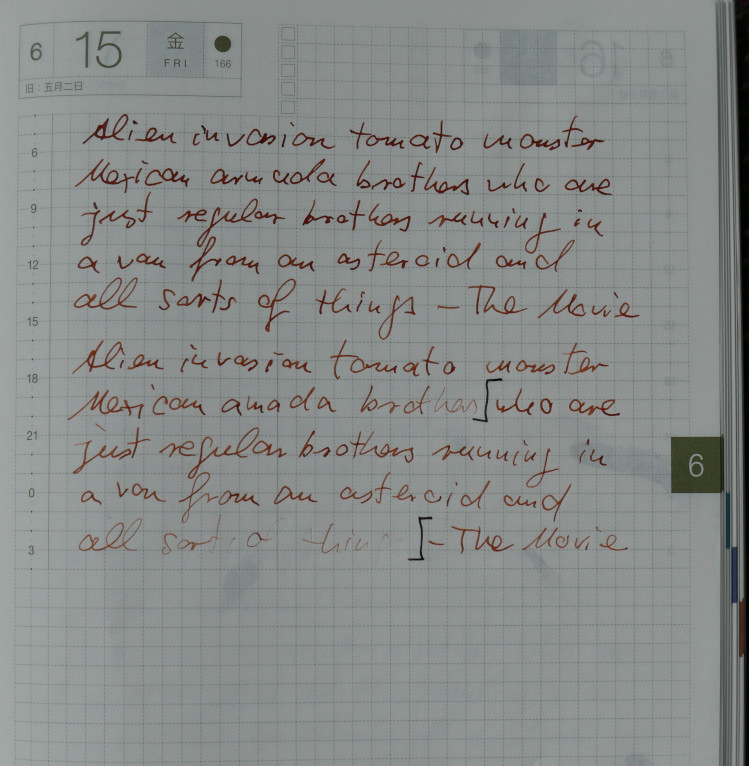 6 15 金 FRI 166
旧:五月二日
Alien invasion tomato monster
6
Mexican armada brothers who are
9
just regular brothers running in
12
a van from an asteroid and
all sorts of things - The Movie
15
Alien invasion tomato monster
18
Mexican amada brothers] who are
21
just regular brothers running in
6
0
a van from an asteroid and
all sort of thin ] - The Movie
3